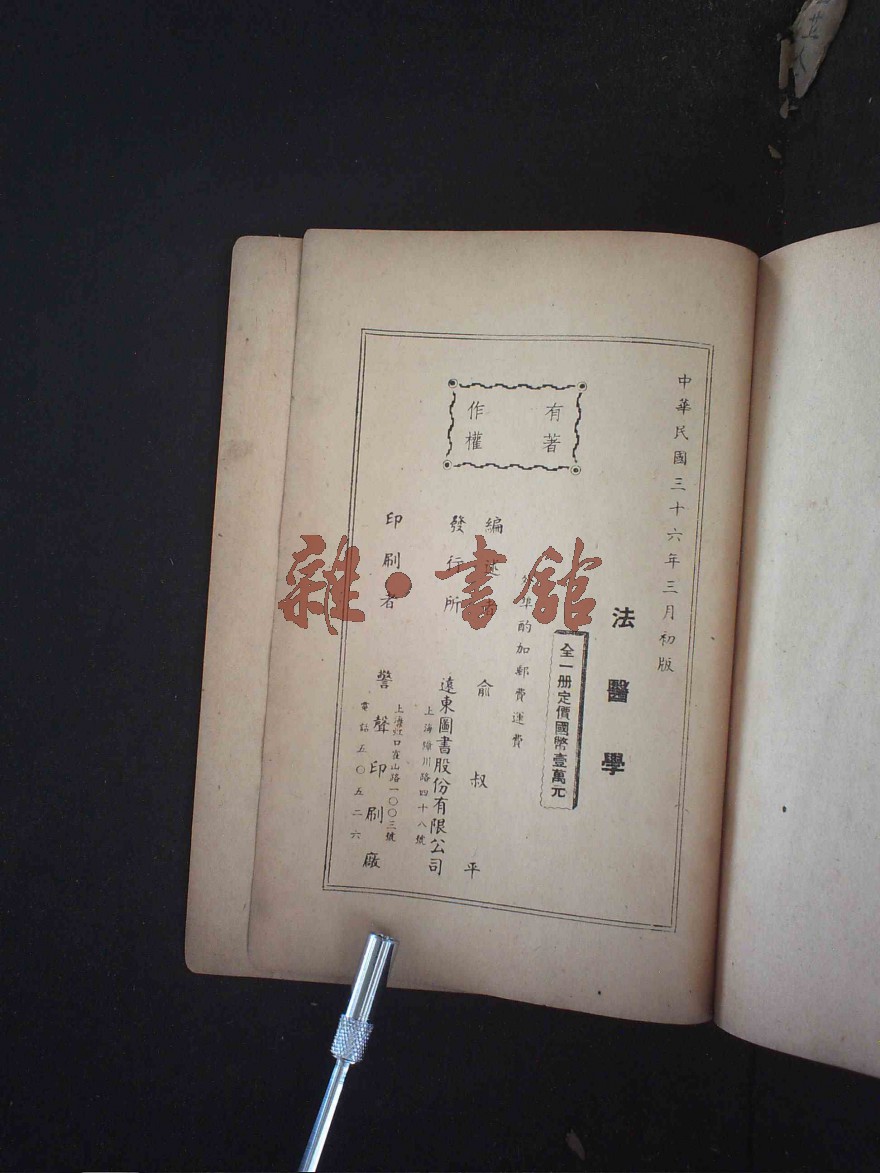 中華民國三十六年三月初版
法醫學
全一册定價國幣壹萬元
埠酌加郵費運費
有著
作權
編述者 俞叔平
發行所 遠東圖書股份有限公司
上海四川路四十八號
印刷者 警聲印刷廠
上海虹口霍山路一〇〇三號
電話五〇五二六
雜·書館